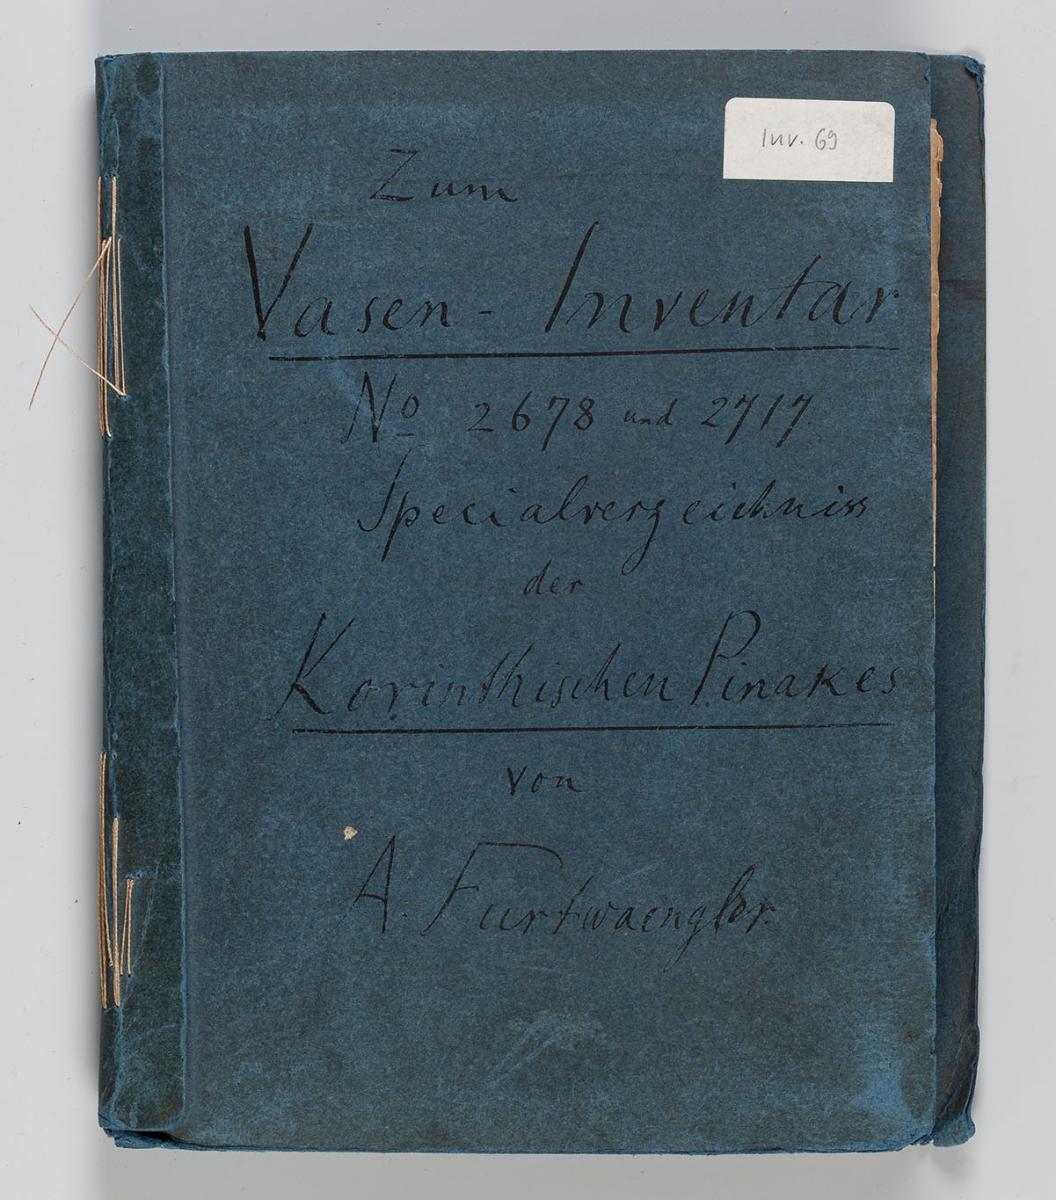 Inv. 69
Zum
Vasen - Inventar
No 2678 und 2717.
Specialverzeichniss
der
Korinthischen Pinakes
von
A. Furtwaengler.